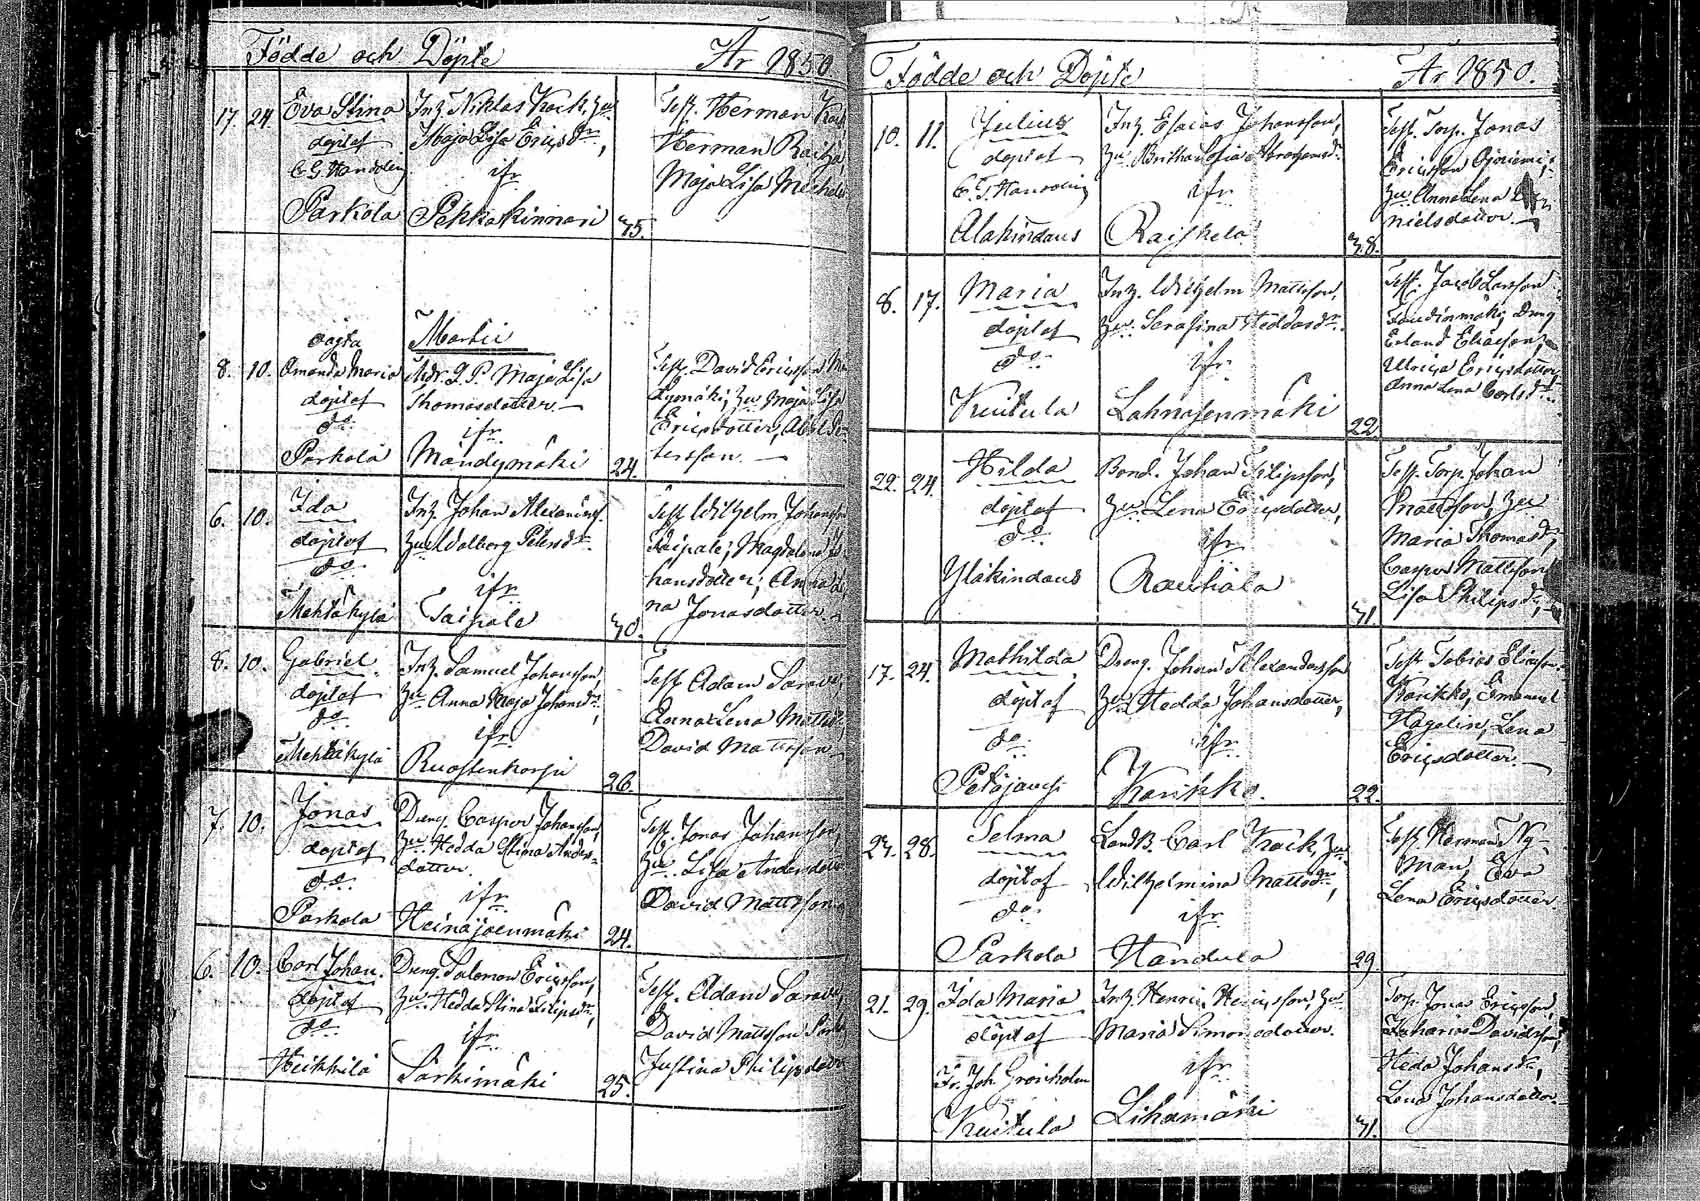 Födde och Döpte År 1850.
17. 24. Eva Stina
döpt af
C. G. Hanselin
Parkola
Inh. Niklas Krook, hu
Maja Lisa Ericsdr,
ifr
Pehkakinnari
35.
Test. Herman
Herman
Maja Lisa
Martii
8. 10. oägta
Amanda Maria
döpt af
do
Parkola
Maja Lisa
Thomasdotter.
ifr
Mändymäki
24.
Test. David Ericsson
hu Maja Lisa
Ericsdotter,
tersson.
6. 10. Ida
döpt af
do
Mehtäkylä
Inh. Johan Alexanderss.
hu Walborg Petersdr.
ifr
Taipale
30.
Test Wilhelm Johansson
Taipale; Magdalena Jo
hansdotter; Anna
na Jonasdotter.
8. 10. Gabriel
döpt af
do
Mehtäkylä
Inh. Samuel Johansson,
hu Anna Maja Johansdr,
ifr
Ruostenkorpi
26.
Test Adam
Anna Lena
David Mattsson
7. 10. Jonas
döpt af
do
Parkola
Dreng Casper Johansson,
hu Hedda Stina Anders-
dotter.
ifr
Heinäjoenmäki
24.
Test. Jonas Johansson,
hu Lisa Andersdotter
David Mattsson
6. 10. Carl Johan
döpt af
do
Heikkilä
Dreng. Salomon Ericsson,
hu Hedda Stina Filipsdr,
ifr
Särkimäki
25.
Test. Adam
David Mattsson
Justina Philipsdotter
Födde och Döpte År 1850.
10. 11. Julius
döpt af
C. G. Hanselin
Alakindaus
Inh. Esaias Johansson,
hu Britha Sofia Abrahamsdr.
ifr
Raiskela
38.
Test. Torp. Jonas
Ericsson
hu Anna Lena Da
nielsdotter.
8. 17. Maria
döpt af
do
Kuitula
Inh. Wilhelm Mattsson,
hu Serafina Heddasdr.
ifr
Lahnasenmäki
22.
Test. Jacob Larsson
Dreng
Erland Eliasson,
Ulrica Ericsdotter
Anna Lena Carlsdr.
22. 24. Hilda
döpt af
do
Yläkindaus
Bond. Johan Filipsson,
hu Lena Ericsdotter,
ifr
Rauhala
31.
Test. Torp. Johan
Mattsson, hu
Maria Thomasdr,
Casper Mattsson,
Lisa Philipsdr,
17. 24. Mathilda
döpt af
do
Petäjäus
Dreng. Johan Alexandersson
hu Hedda Johansdotter,
ifr
Karikko.
22.
Test Tobias Eliasson
Karikko, Emanuel
Hagelin, Lena
Ericsdotter.
27. 28. Selma
döpt af
do
Parkola
Landb. Carl Krook, hu
Wilhelmina Mattsdr,
ifr
Handula
29.
Test. Herman Ny-
man, Eva
Lena Ericsdotter
21. 29. Ida Maria
döpt af
Fr. Joh. Grönholm
Kuitula
Inh. Henric Henricsson, hu
Maria Simonsdotter.
ifr
Lihamäki
31.
Torp. Jonas Ericsson,
Zacharias Davidsson,
Heda Johansdr,
Lena Johansdotter.